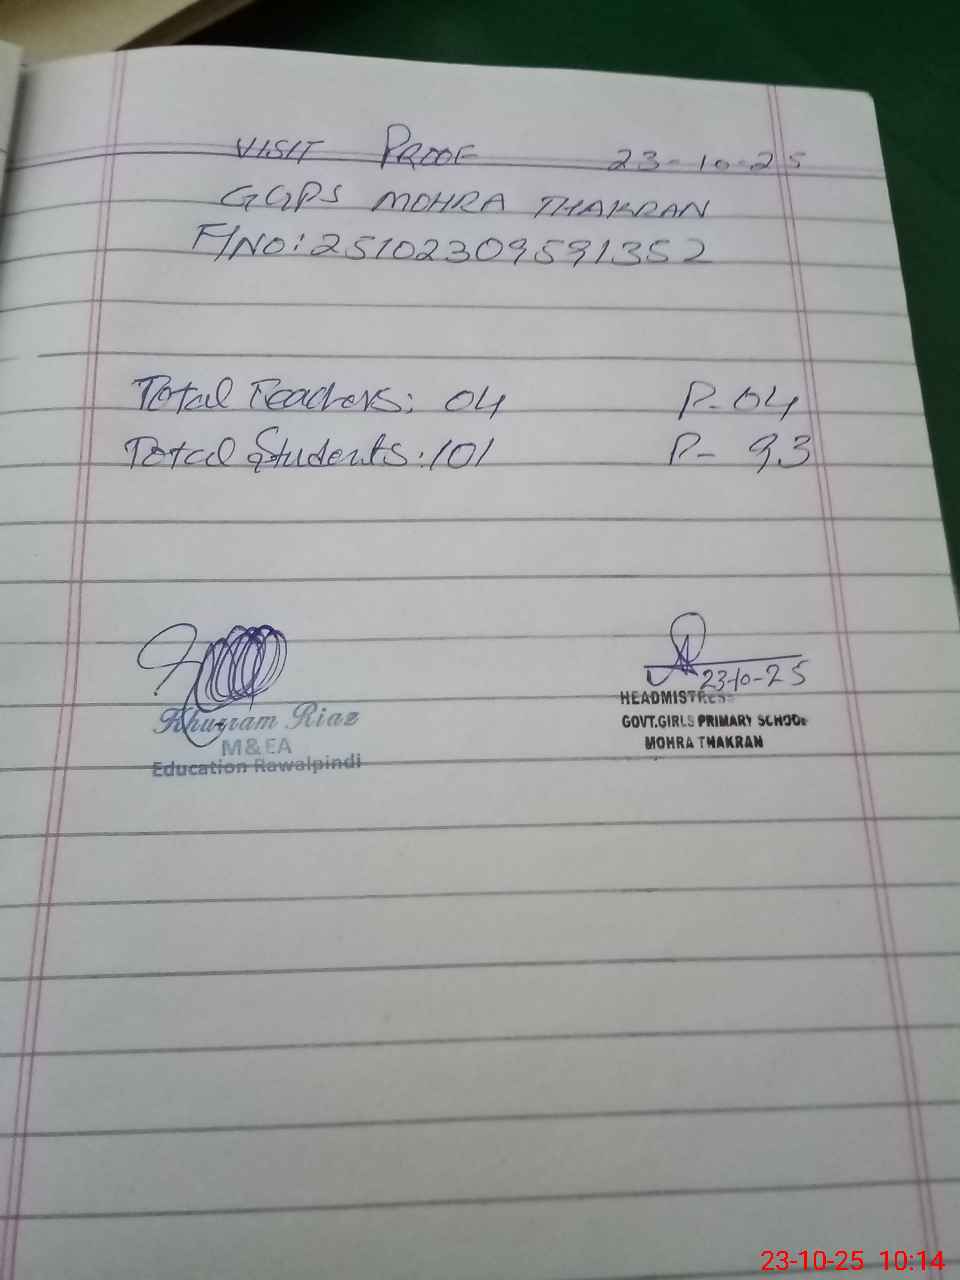 VISIT PROOF 23-10-25
GGPS MOHRA THAKRAN
F/NO: 25102309591352
Total Teachers: 04 P-04
Total Students: 101 P- 93
23-10-25
Khurram Riaz
M&EA
Education Rawalpindi
HEADMISTRESS
GOVT.GIRLS PRIMARY SCHOOL
MOHRA THAKRAN
23-10-25 10:14